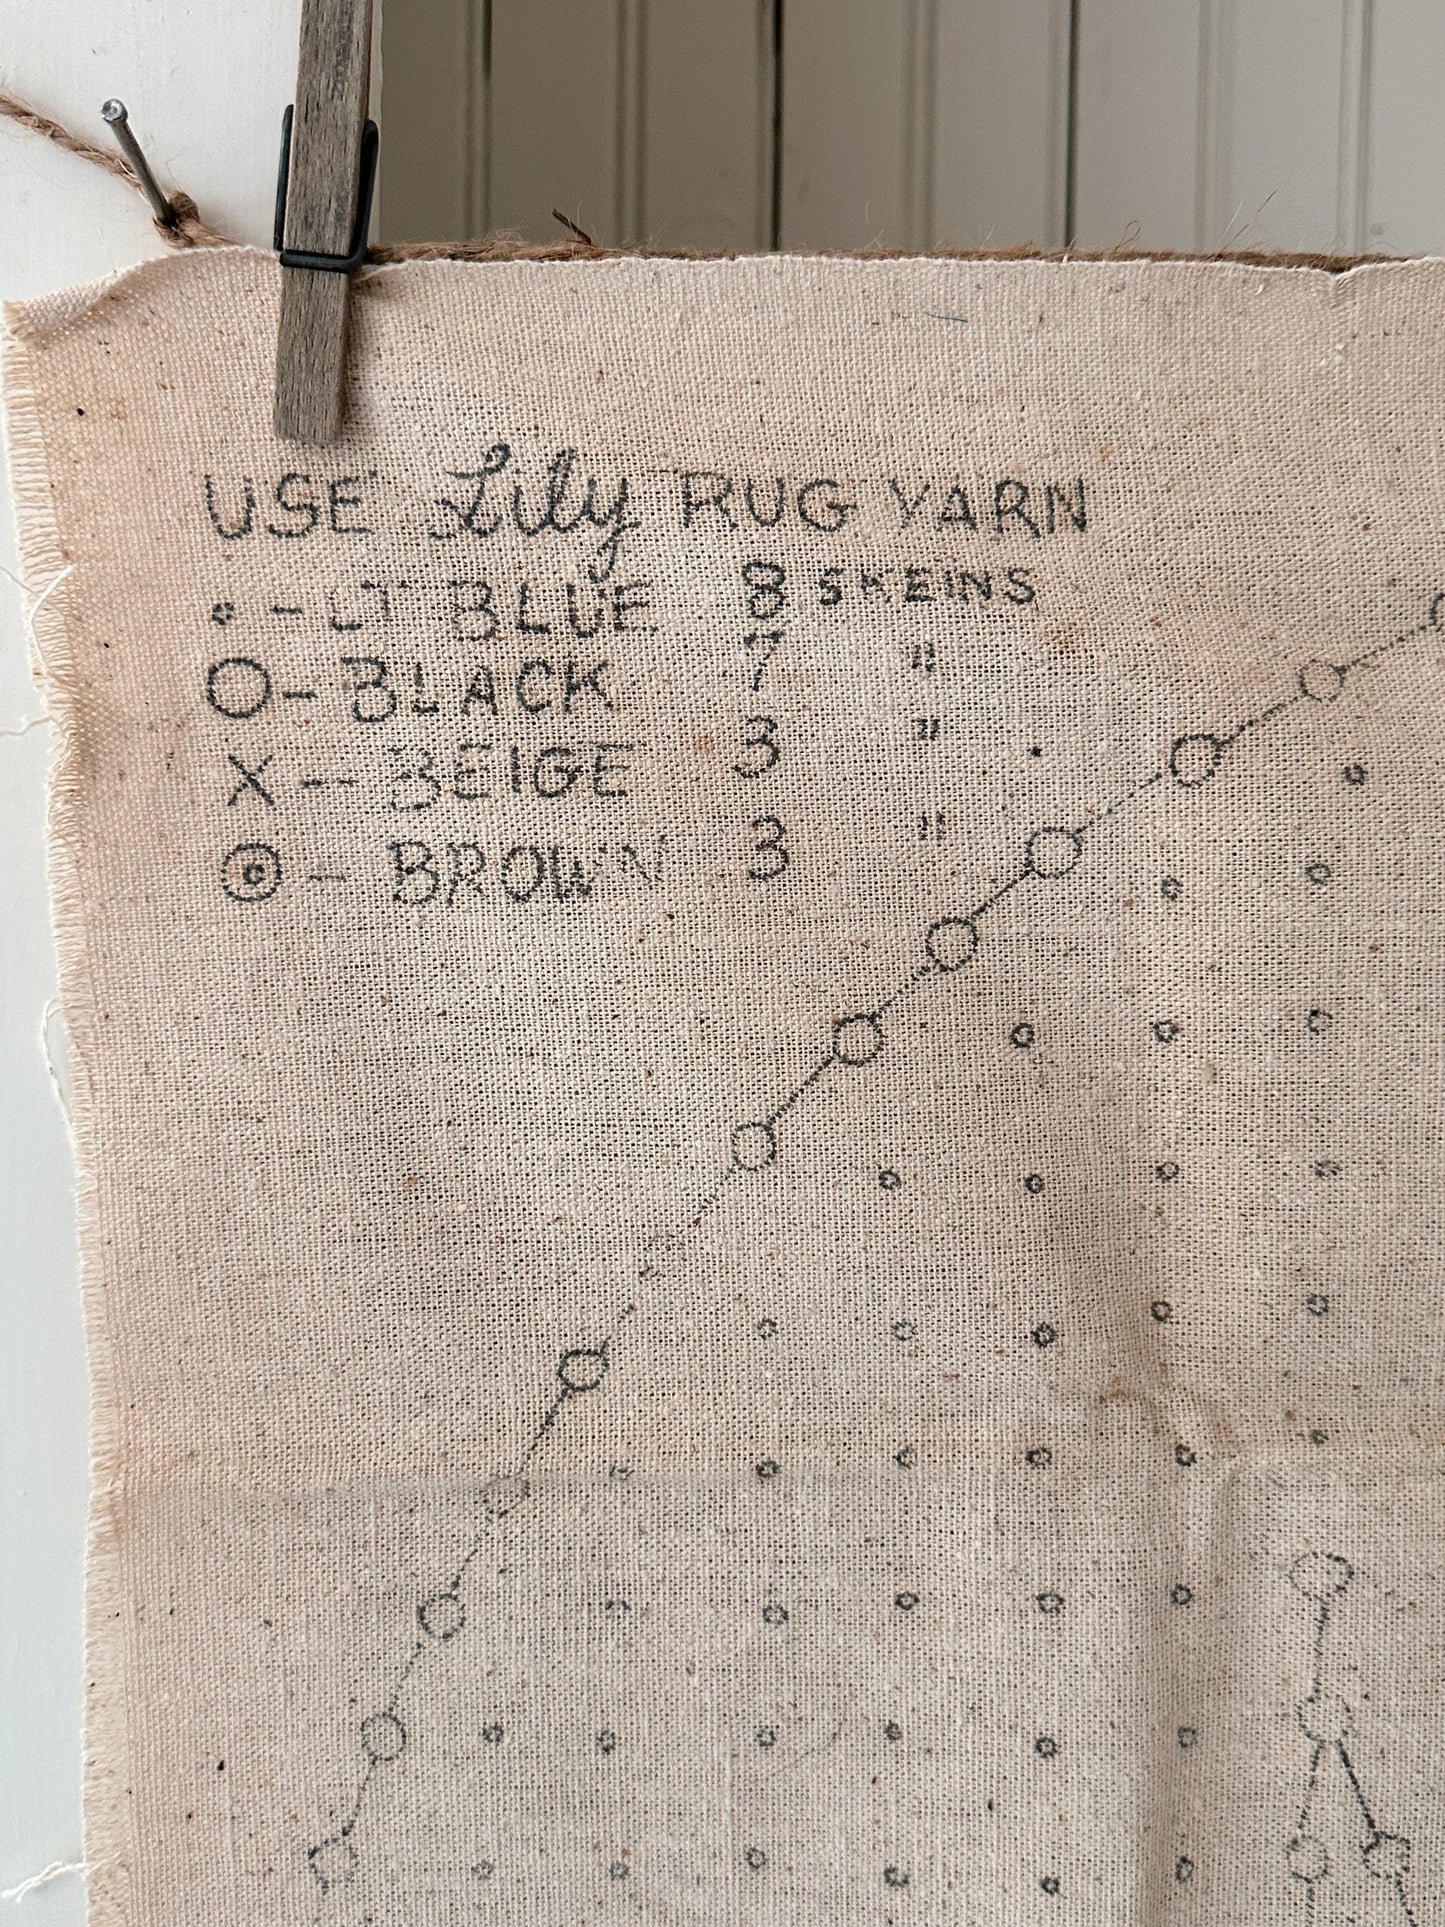 USE Lily RUG YARN
• - LT BLUE 8 SKEINS
O - BLACK 7 "
X - BEIGE 3 "
⊙ - BROWN 3 "